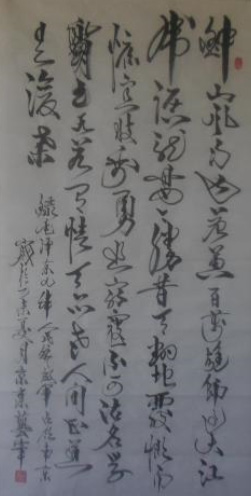 鍾山風雨起蒼黃百萬雄師過大江
虎踞龍盤今勝昔天翻地覆慨而
慷宜將剩勇追窮寇不可沽名學
霸王天若有情天亦老人間正道
是滄桑
錄毛澤東七律人民解放軍占領南京